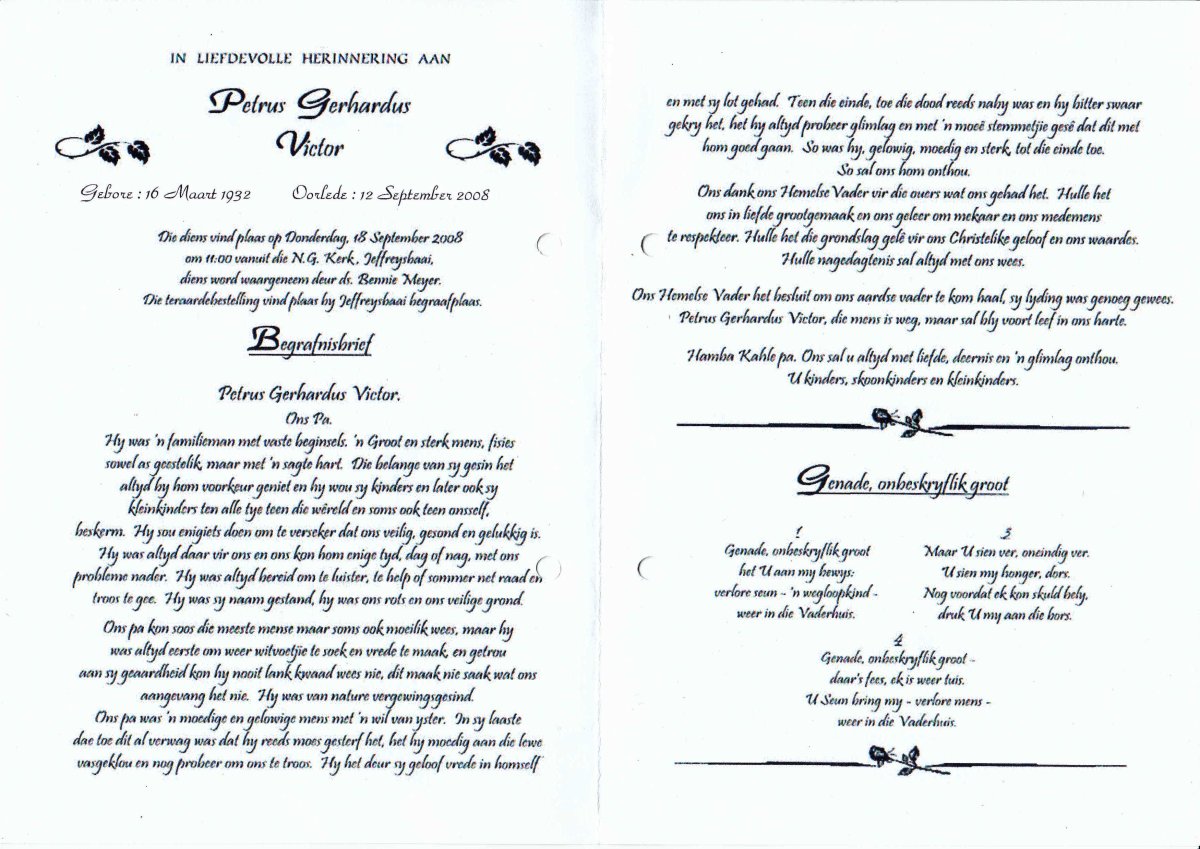 IN LIEFDEVOLLE HERINNERING AAN
Petrus Gerhardus
Victor
Gebore : 16 Maart 1932 Oorlede : 12 September 2008
Die diens vind plaas op Donderdag, 18 September 2008
om 11:00 vanuit die N.G. Kerk, Jeffreysbaai,
diens word waargeneem deur ds. Bennie Meyer.
Die teraardebestelling vind plaas by Jeffreysbaai begraafplaas.
Begrafnisbrief
Petrus Gerhardus Victor.
Ons Pa.
Hy was 'n familieman met vaste beginsels. 'n Groot en sterk mens, fisies
sowel as geestelik, maar met 'n sagte hart. Die belange van sy gesin het
altyd by hom voorkeur geniet en hy wou sy kinders en later ook sy
kleinkinders ten alle tye teen die wêreld en soms ook teen onsself,
beskerm. Hy sou enigiets doen om te verseker dat ons veilig, gesond en gelukkig is.
Hy was altyd daar vir ons en ons kon hom enige tyd, dag of nag, met ons
probleme nader. Hy was altyd bereid om te luister, te help of sommer net raad en
troos te gee. Hy was sy naam gestand, hy was ons rots en ons veilige grond.
Ons pa kon soos die meeste mense maar soms ook moeilik wees, maar hy
was altyd eerste om weer witvoetjie te soek en vrede te maak, en getrou
aan sy geaardheid kon hy nooit lank kwaad wees nie, dit maak nie saak wat ons
aangevang het nie. Hy was van nature vergewingsgesind.
Ons pa was 'n moedige en gelowige mens met 'n wil van yster. In sy laaste
dae toe dit al verwag was dat hy reeds moes gesterf het, het hy moedig aan die lewe
vasgeklou en nog probeer om ons te troos. Hy het deur sy geloof vrede in homself
en met sy lot gehad. Teen die einde, toe die dood reeds naby was en hy bitter swaar
gekry het, het hy altyd probeer glimlag en met 'n moeë stemmetjie gesê dat dit met
hom goed gaan. So was hy, gelowig, moedig en sterk, tot die einde toe.
So sal ons hom onthou.
Ons dank ons Hemelse Vader vir die ouers wat ons gehad het. Hulle het
ons in liefde grootgemaak en ons geleer om mekaar en ons medemens
te respekteer. Hulle het die grondslag gelê vir ons Christelike geloof en ons waardes.
Hulle nagedagtenis sal altyd met ons wees.
Ons Hemelse Vader het besluit om ons aardse vader te kom haal, sy lyding was genoeg gewees.
Petrus Gerhardus Victor, die mens is weg, maar sal bly voort leef in ons harte.
Hamba Kahle pa. Ons sal u altyd met liefde, deernis en 'n glimlag onthou.
U kinders, skoonkinders en kleinkinders.
Genade, onbeskryflik groot
1
Genade, onbeskryflik groot
het U aan my bewys:
verlore seun - 'n wegloopkind -
weer in die Vaderhuis.
3
Maar U sien ver, oneindig ver.
U sien my honger, dors.
Nog voordat ek kon skuld bely,
druk U my aan die bors.
4
Genade, onbeskryflik groot -
daar's fees, ek is weer tuis.
U Seun bring my - verlore mens -
weer in die Vaderhuis.